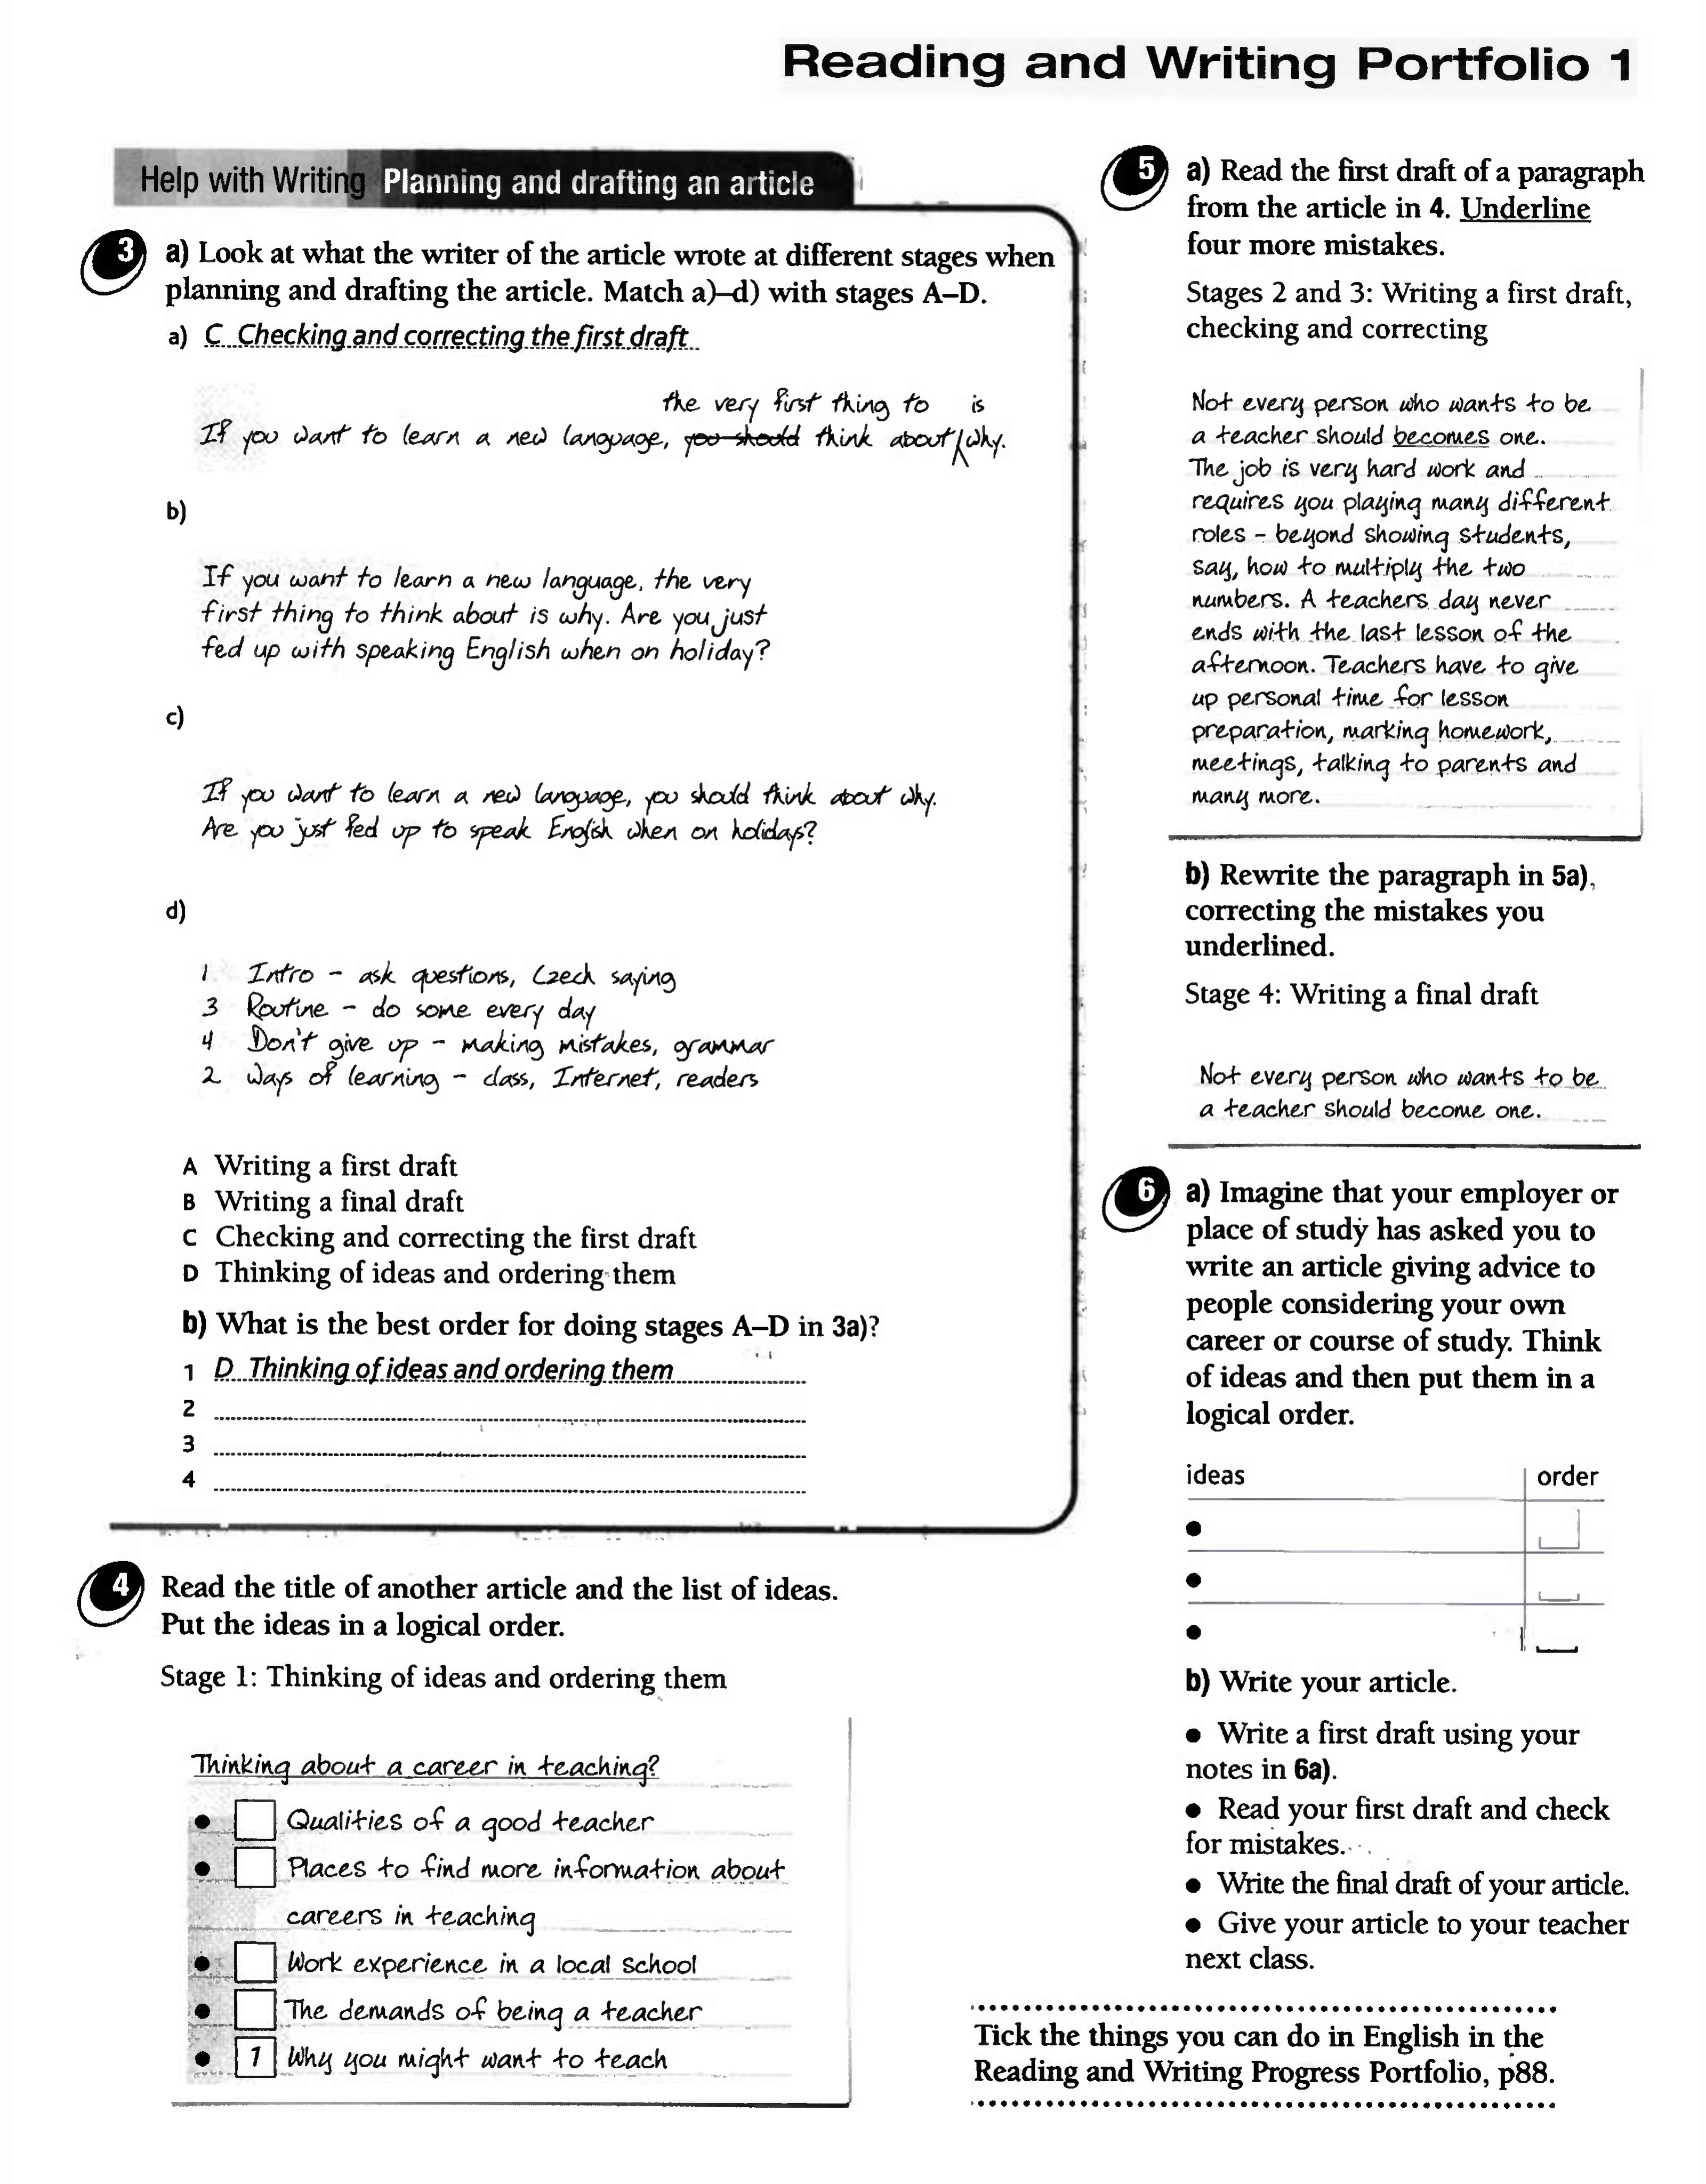 Reading and Writing Portfolio 1
Help with Writing Planning and drafting an article
3 a) Look at what the writer of the article wrote at different stages when
planning and drafting the article. Match a)–d) with stages A–D.
a) C Checking and correcting the first draft
the very first thing to is
If you want to learn a new language, you should think about why.
b)
If you want to learn a new language, the very
first thing to think about is why. Are you just
fed up with speaking English when on holiday?
c)
If you want to learn a new language, you should think about why.
Are you just fed up to speak English when on holidays?
d)
1 Intro – ask questions, Czech saying
3 Routine – do some every day
4 Don't give up – making mistakes, grammar
2 Ways of learning – class, Internet, readers
A Writing a first draft
B Writing a final draft
C Checking and correcting the first draft
D Thinking of ideas and ordering them
b) What is the best order for doing stages A–D in 3a)?
1 D Thinking of ideas and ordering them
2
3
4
4 Read the title of another article and the list of ideas.
Put the ideas in a logical order.
Stage 1: Thinking of ideas and ordering them
Thinking about a career in teaching?
• Qualities of a good teacher
• Places to find more information about
careers in teaching
• Work experience in a local school
• The demands of being a teacher
• 1 Why you might want to teach
5 a) Read the first draft of a paragraph
from the article in 4. Underline
four more mistakes.
Stages 2 and 3: Writing a first draft,
checking and correcting
Not every person who wants to be
a teacher should becomes one.
The job is very hard work and
requires you playing many different
roles – beyond showing students,
say, how to multiply the two
numbers. A teachers day never
ends with the last lesson of the
afternoon. Teachers have to give
up personal time for lesson
preparation, marking homework,
meetings, talking to parents and
many more.
b) Rewrite the paragraph in 5a),
correcting the mistakes you
underlined.
Stage 4: Writing a final draft
Not every person who wants to be
a teacher should become one.
6 a) Imagine that your employer or
place of study has asked you to
write an article giving advice to
people considering your own
career or course of study. Think
of ideas and then put them in a
logical order.
ideas order
•
•
•
b) Write your article.
• Write a first draft using your
notes in 6a).
• Read your first draft and check
for mistakes.
• Write the final draft of your article.
• Give your article to your teacher
next class.
Tick the things you can do in English in the
Reading and Writing Progress Portfolio, p88.